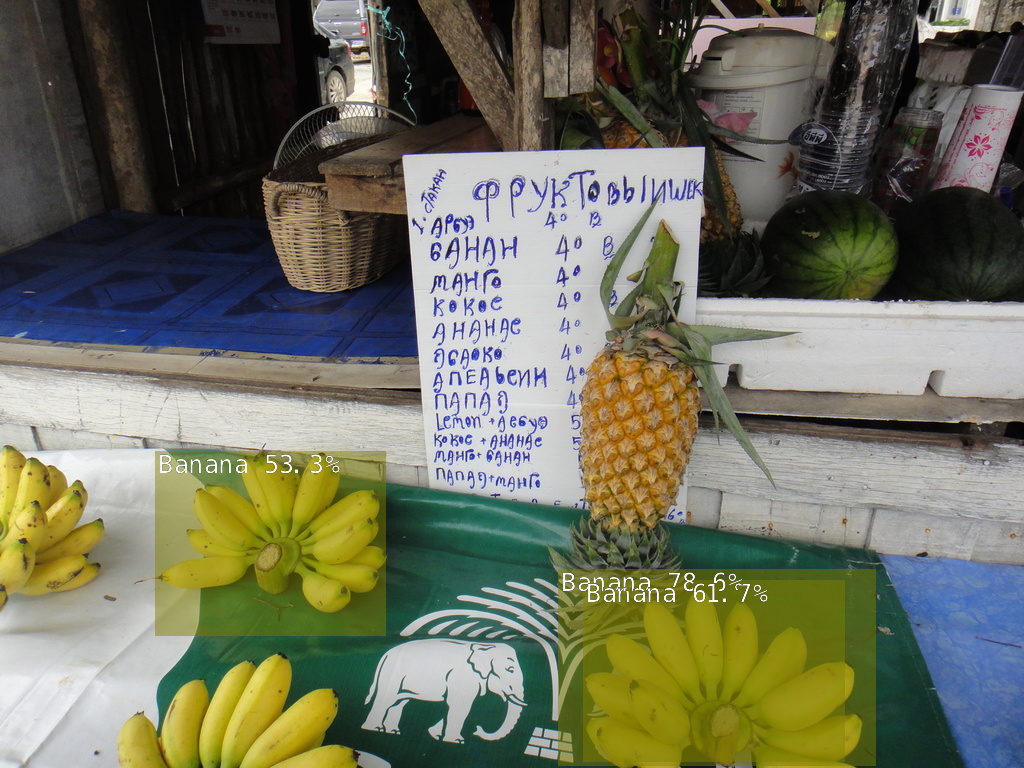 1. СТАКАН
ФРУКТОВЫЙ ШЕК
АРБУЗ 40 B
БАНАН 40 B
МАНГО 40
КОКОС 40 B
АНАНАС 40
ЯБЛОКО 40
АПЕЛЬСИН 40
ПАПАЯ 4
Lemon + АРБУЗ 5
КОКОС + АНАНАС 5
МАНГО + БАНАН
ПАПАЯ + МАНГО
Banana 53.3%
Banana 78.6%
Banana 61.7%